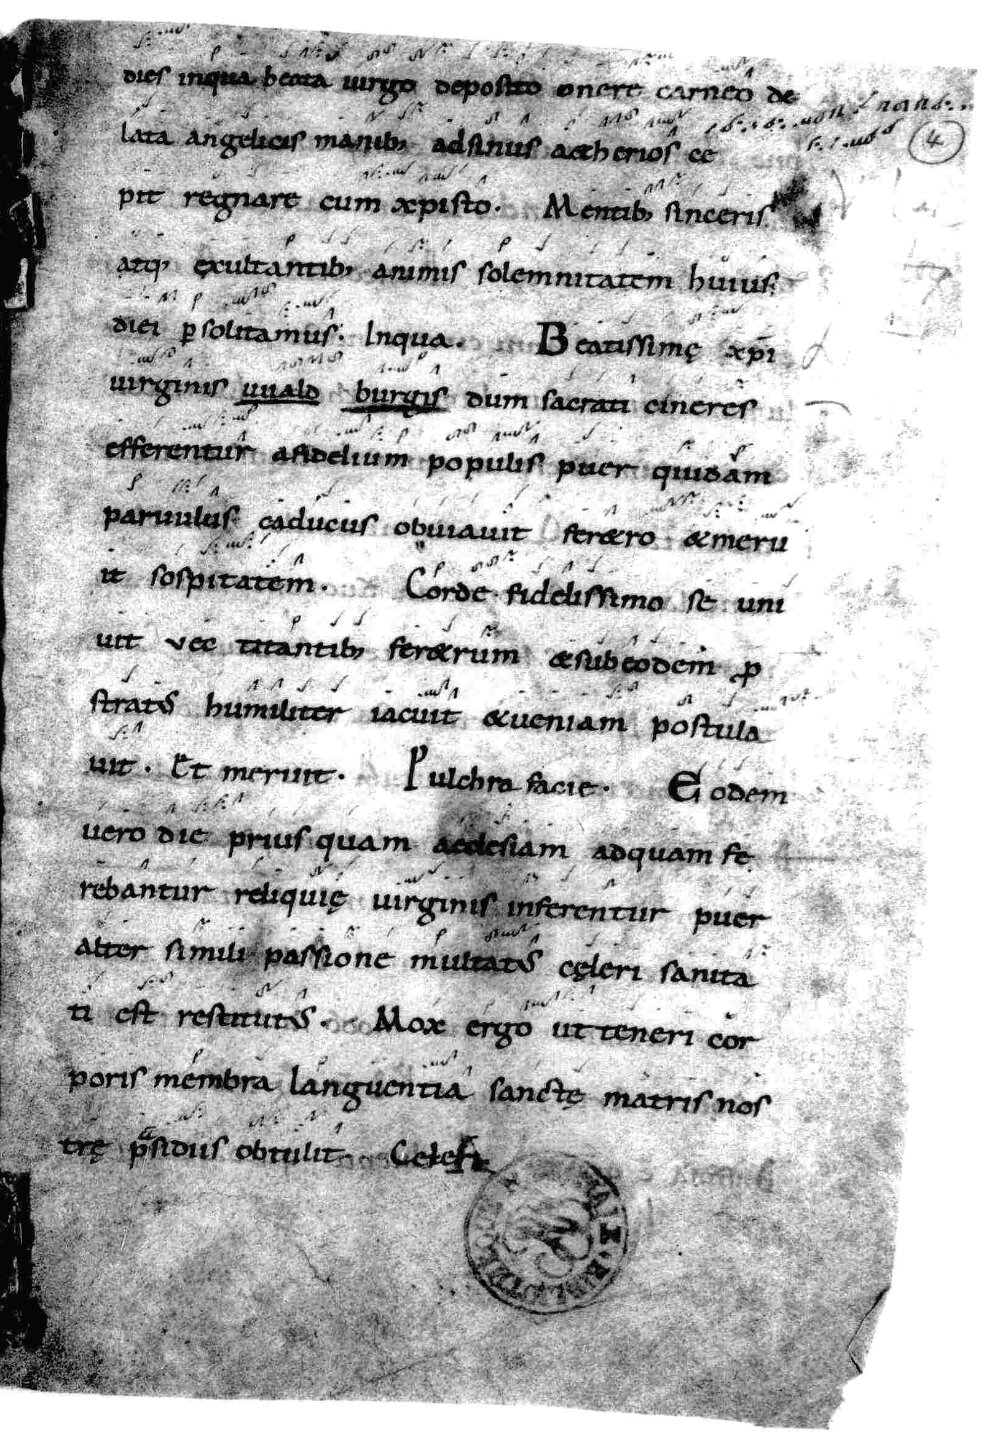 dies inqua beata uirgo deposito onere carneo de
lata angelicis manib; adsinus aetherios ce
pit regnare cum xpisto. Mentib; sinceris
atq; exultantib; animis solemnitatem huius
diei psolitamus. Inqua. Beatissimę xpi
uirginis uuald burgis dum sacrati cineres
efferentur afidelium populis puer quidam
paruulus caducus obuiauit feretro &meru
it sospitatem. Corde fidelissimo se uni
uit vec titantib; feretrum &subeodem p
stratus humiliter iacuit &ueniam postula
uit. Et meruit. Pulchra facie. Eodem
uero die prius quam aecclesiam adquam fe
rebantur reliquię uirginis inferentur puer
alter simili passione multatus cęleri sanita
ti est restitutus. Mox ergo ut teneri cor
poris membra languentia sanctę matris nos
trę psidiis obtulit
4